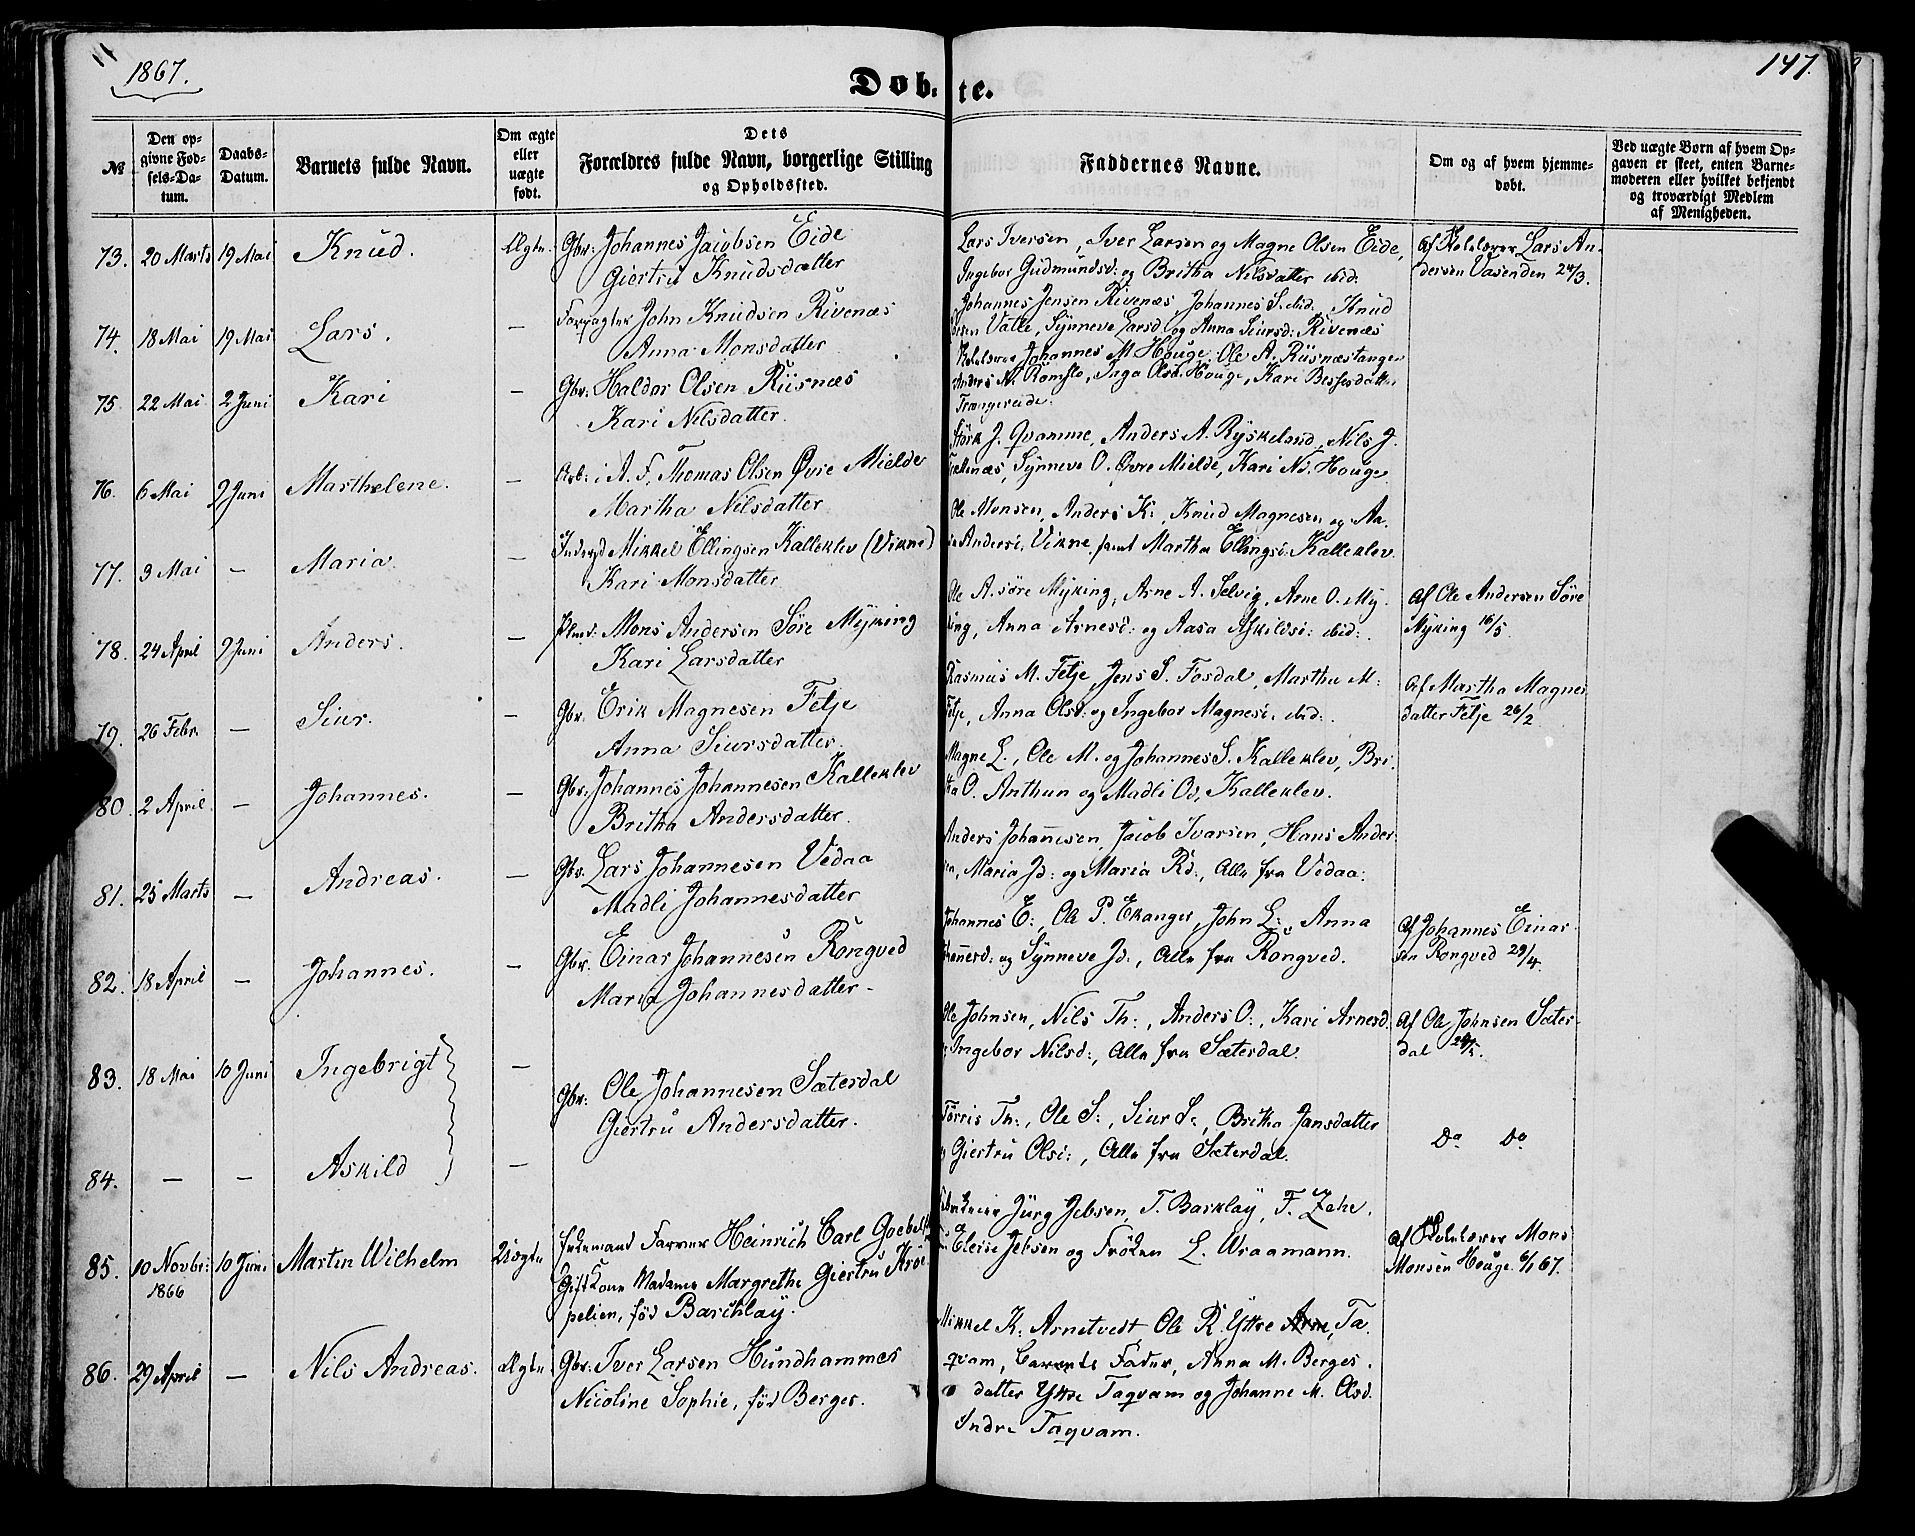 1867.
147.
Døb: te.
No
Den opgivne Fødsels-Datum.
Daabs-Datum.
Barnets fulde Navn.
Om ægte eller uægte født.
Dets Forældres fulde Navn, borgerlige Stilling og Opholdssted.
Faddernes Navne.
Om og af hvem hjemmedøbt.
Ved uægte Børn af hvem Opgaven er skeet, enten Barnemoderen eller hvilket bekjendt og troværdigt Medlem af Menigheden.
73. 20 Marts 19 Mai Knud. Ægte. Gbr: Johannes Jacobsen Eide
Giertru Knudsdatter
Lars Iversen, Iver Larsen og Magne Olsen Eide,
Ingebor Gudmundsd: og Britha Nilsdatter ibid:
Af Skolelærer Lars An-
dersen Vasenden 24/3.
74. 18 Mai 19 Mai Lars. — Forpagter John Knudsen Rivenæs
Anna Monsdatter
Johannes Jensen Rivenæs, Johannes S. ibid. Knud
Valle, Synneve Larsd. og Anna Siursd: Rivenæs
75 22 Mai 2 Juni Kari — Gbr: Haldor Olsen Riisnæs
Kari Nilsdatter.
Skolelærer Johannes M Houge, Ole A. Riisnæstangen
Anders N. Romslo, Inga Olsd. Houge, Kari Bessesdatter
Trængereide.
76. 6 Mai 9 Juni Marthelene. — Arb: i A. F. Thomas Olsen Øvre Mielde
Martha Nilsdatter
Størk J. Qvamme, Anders A. Ryskelund, Nils J.
Synneve O. Øvre Mielde, Kari Nd. Houge
77. 3 Mai — Maria. — Inderst Mikkel Ellingsen Kalleklev (Vikne)
Kari Monsdatter
Ole Monsen, Anders K:, Knud Magnesen og Aa-
Andersd. Vikne, samt Martha Ellingsd. Kalleklev.
78. 24 April 9 Juni Anders. — Plmd: Mons Andersen Søre Myking
Kari Larsdatter
Ole A. søre Myking, Arne A. Selvig, Arne O. My-
king, Anna Arnesd: og Aasa Askildsd: ibid:.
Af Ole Andersen Søre
Myking 16/5.
79. 26 Febr. — Siur. — Gbr. Erik Magnesen Fetje
Anna Siursdatter.
Rasmus M. Fetje, Jens S. Fosdal, Martha M:
Fetje, Anna Olsd: og Ingebor Magnesd: ibid:.
Af Martha Magnes
datter Fetje 26/2
80. 2 April. — Johannes. — Gbr. Johannes Johannesen Kalleklev
Britha Andersdatter.
Magne L., Ole M. og Johannes S. Kalleklev, Bri-
tha O. Anthun og Madli Od. Kalleklev.
81. 25 Marts — Andreas. — Gbr. Lars Johannesen Vedaa
Madli Johannesdatter
Anders Johannesen, Jacob Ivarsen, Hans Ander-
Maria Jd: og Maria Rd:, Alle fra Vedaa:
82. 18 April — Johannes. — Gbr. Einar Johannesen Rongved
Maria Johannesdatter -
Johannes E:, Ole P. Ekanger, John L:, Anna
og Synneve Jd:, Alle fra Rongved.
Af Johannes Einar-
sen Rongved 29/4.
83. 18 Mai 10 Juni Ingebrigt — Gbr: Ole Johannesen Sæterdal
Giertru Andersdatter.
Ole Johnsen, Nils Th:, Anders O:, Kari Arnesd.
Ingebor Nilsd:, Alle fra Sæterdal.
Af Ole Johnsen Sæter-
dal
84. — — Askild —
Tørris Th:, Ole S:, Siur S:, Britha Jansdatter
Giertru Olsd:, Alle fra Sæterdal.
Do Do
85. 10 Novbr: 1866 10 Juni Martin Wilhelm Uægte Farver Heinrich Carl Goebel
Gift Kone Madame Margrethe Giertru Krøe-
pelien, fød Barchlay.
Jürg Jebsen, T. Barklay, F. Zehe,
Elerie Jebsen og Frøken L. Wraamann.
Af Skolelærer Mons
Monsen Houge 6/1 67.
86. 29 April — Nils Andreas. Ægte Gbr: Iver Larsen Hundhammer
Nicoline Sophie, fød Berger.
Mikkel K. Arnetvedt Ole R. Yttre Ta-
qvam, Barnets Fader, Anna M. Berges-
datter Yttre Taqvam og Johanne M. Olsd.
Indre Taqvam.